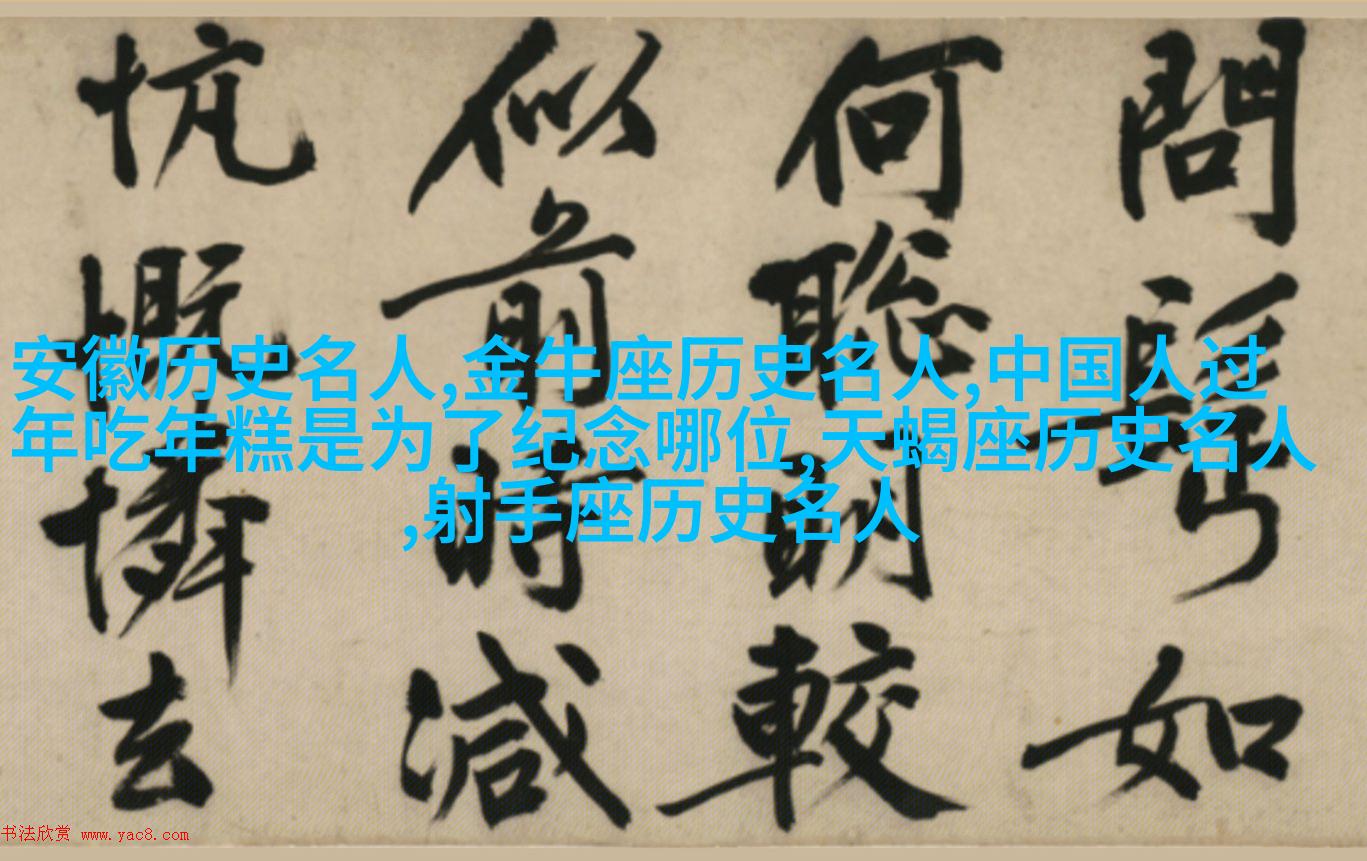 問如
何聰明較
似前時減
忼慨憐去
安徽历史名人,金牛座历史名人,中国人过
年吃年糕是为了纪念哪位,天蝎座历史名人
,射手座历史名人
书法欣赏 www.yac8.com